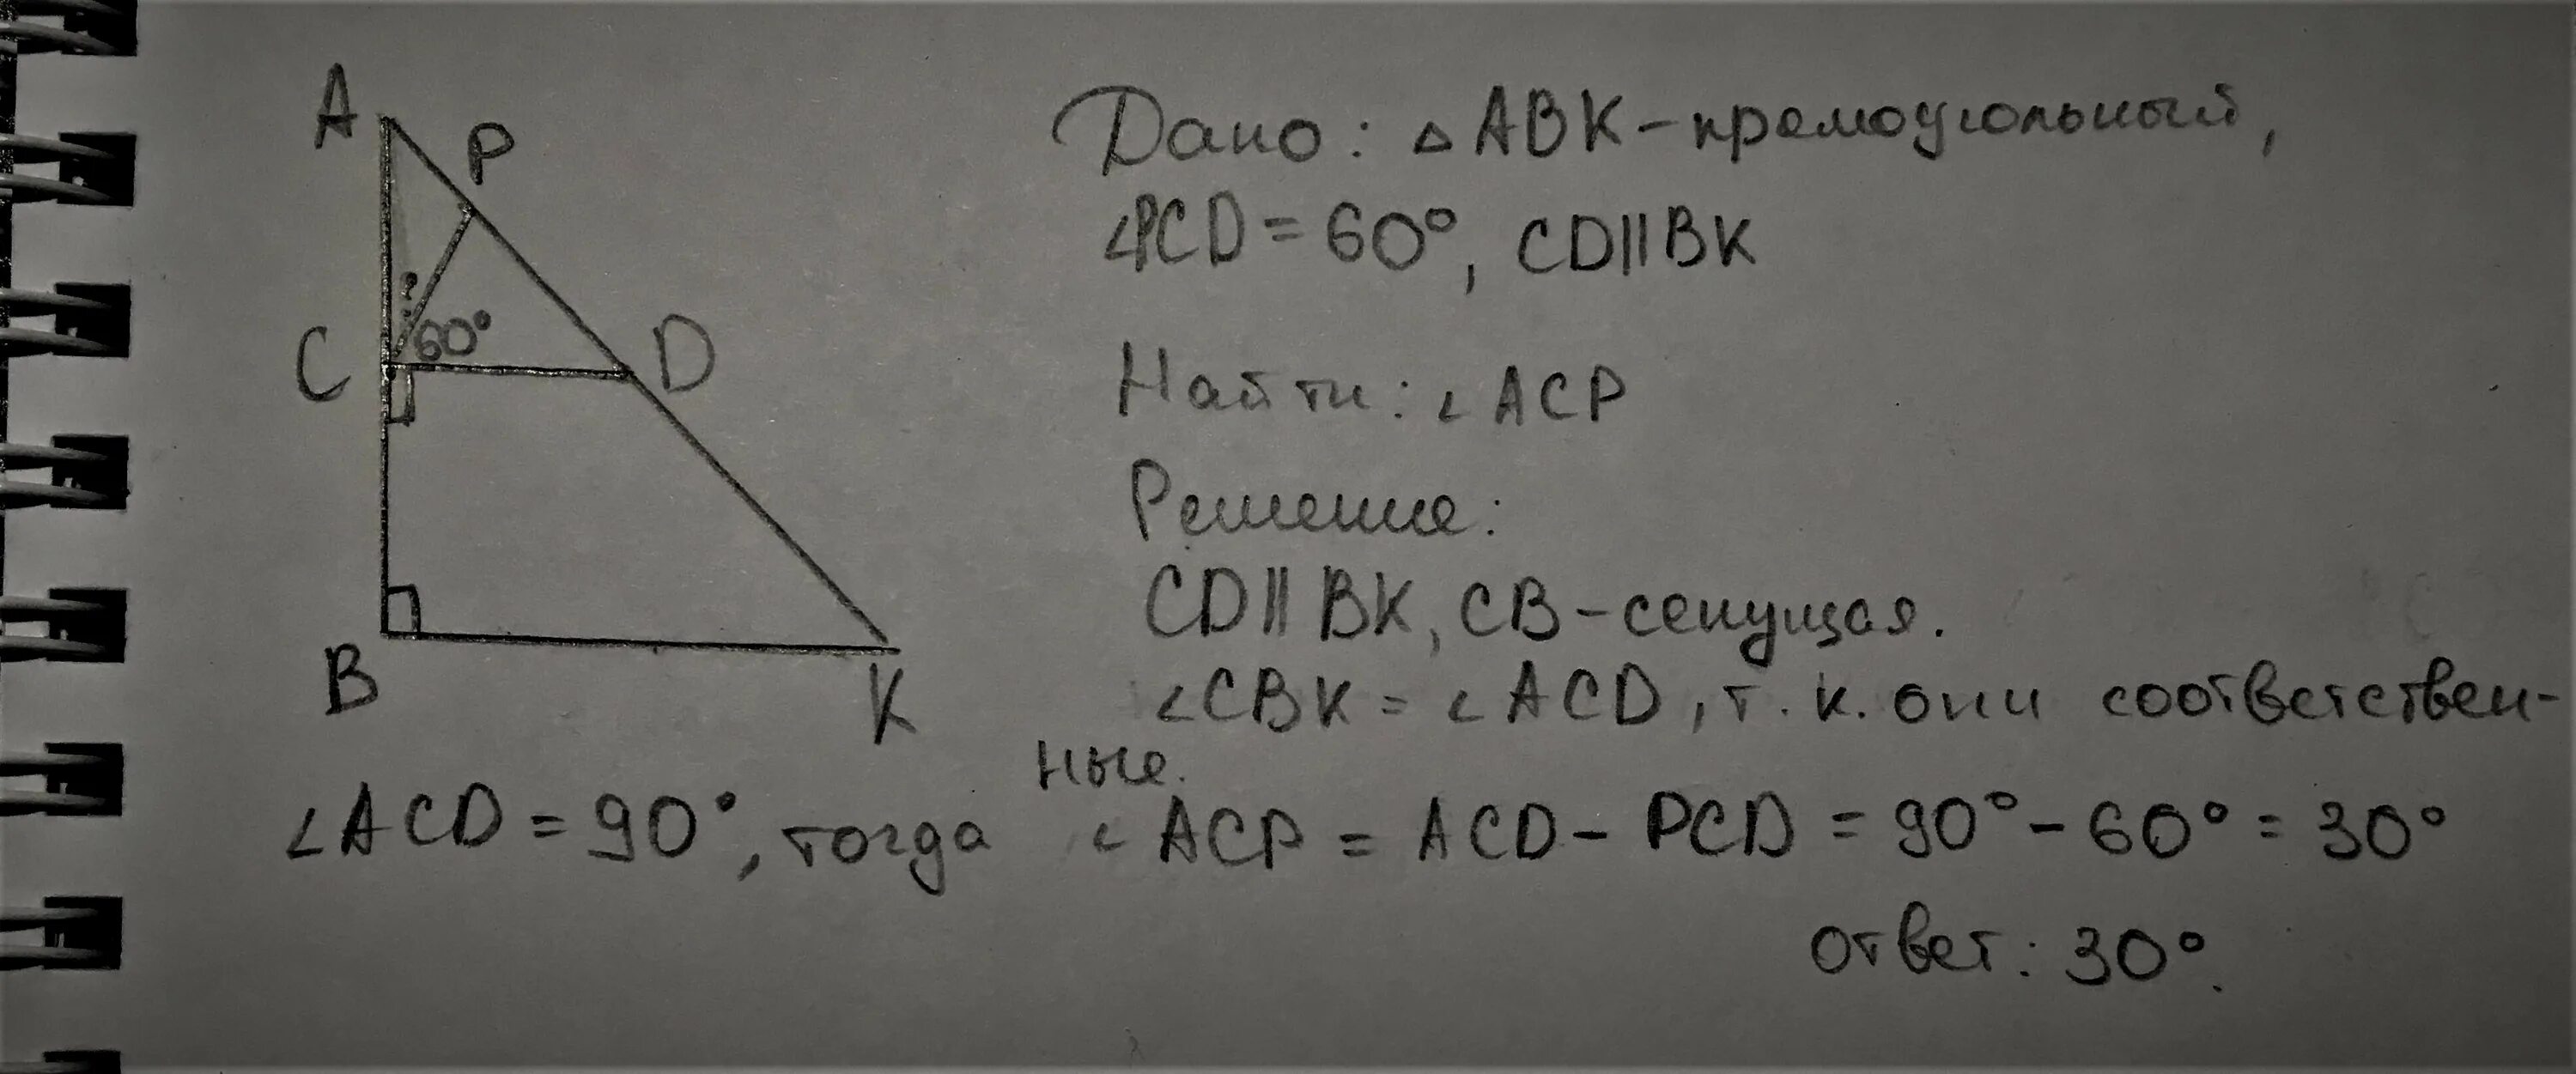 A
P
? 60°
C
D
B
K
Дано: △ABK-прямоугольный,
∠PCD = 60°, CD||BK
Найти: ∠ACP
Решение:
CD || BK, CB-секущая.
∠CBK = ∠ACD, т.к. они соответствен-
ные.
∠ACD = 90°, тогда ∠ACP = ACD - PCD = 90° - 60° = 30°
ответ: 30°.